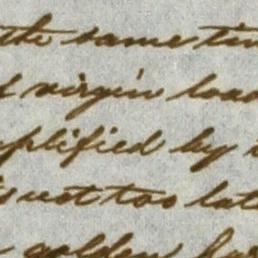 the same tim
virgin load
plified by
is not too lat
golden